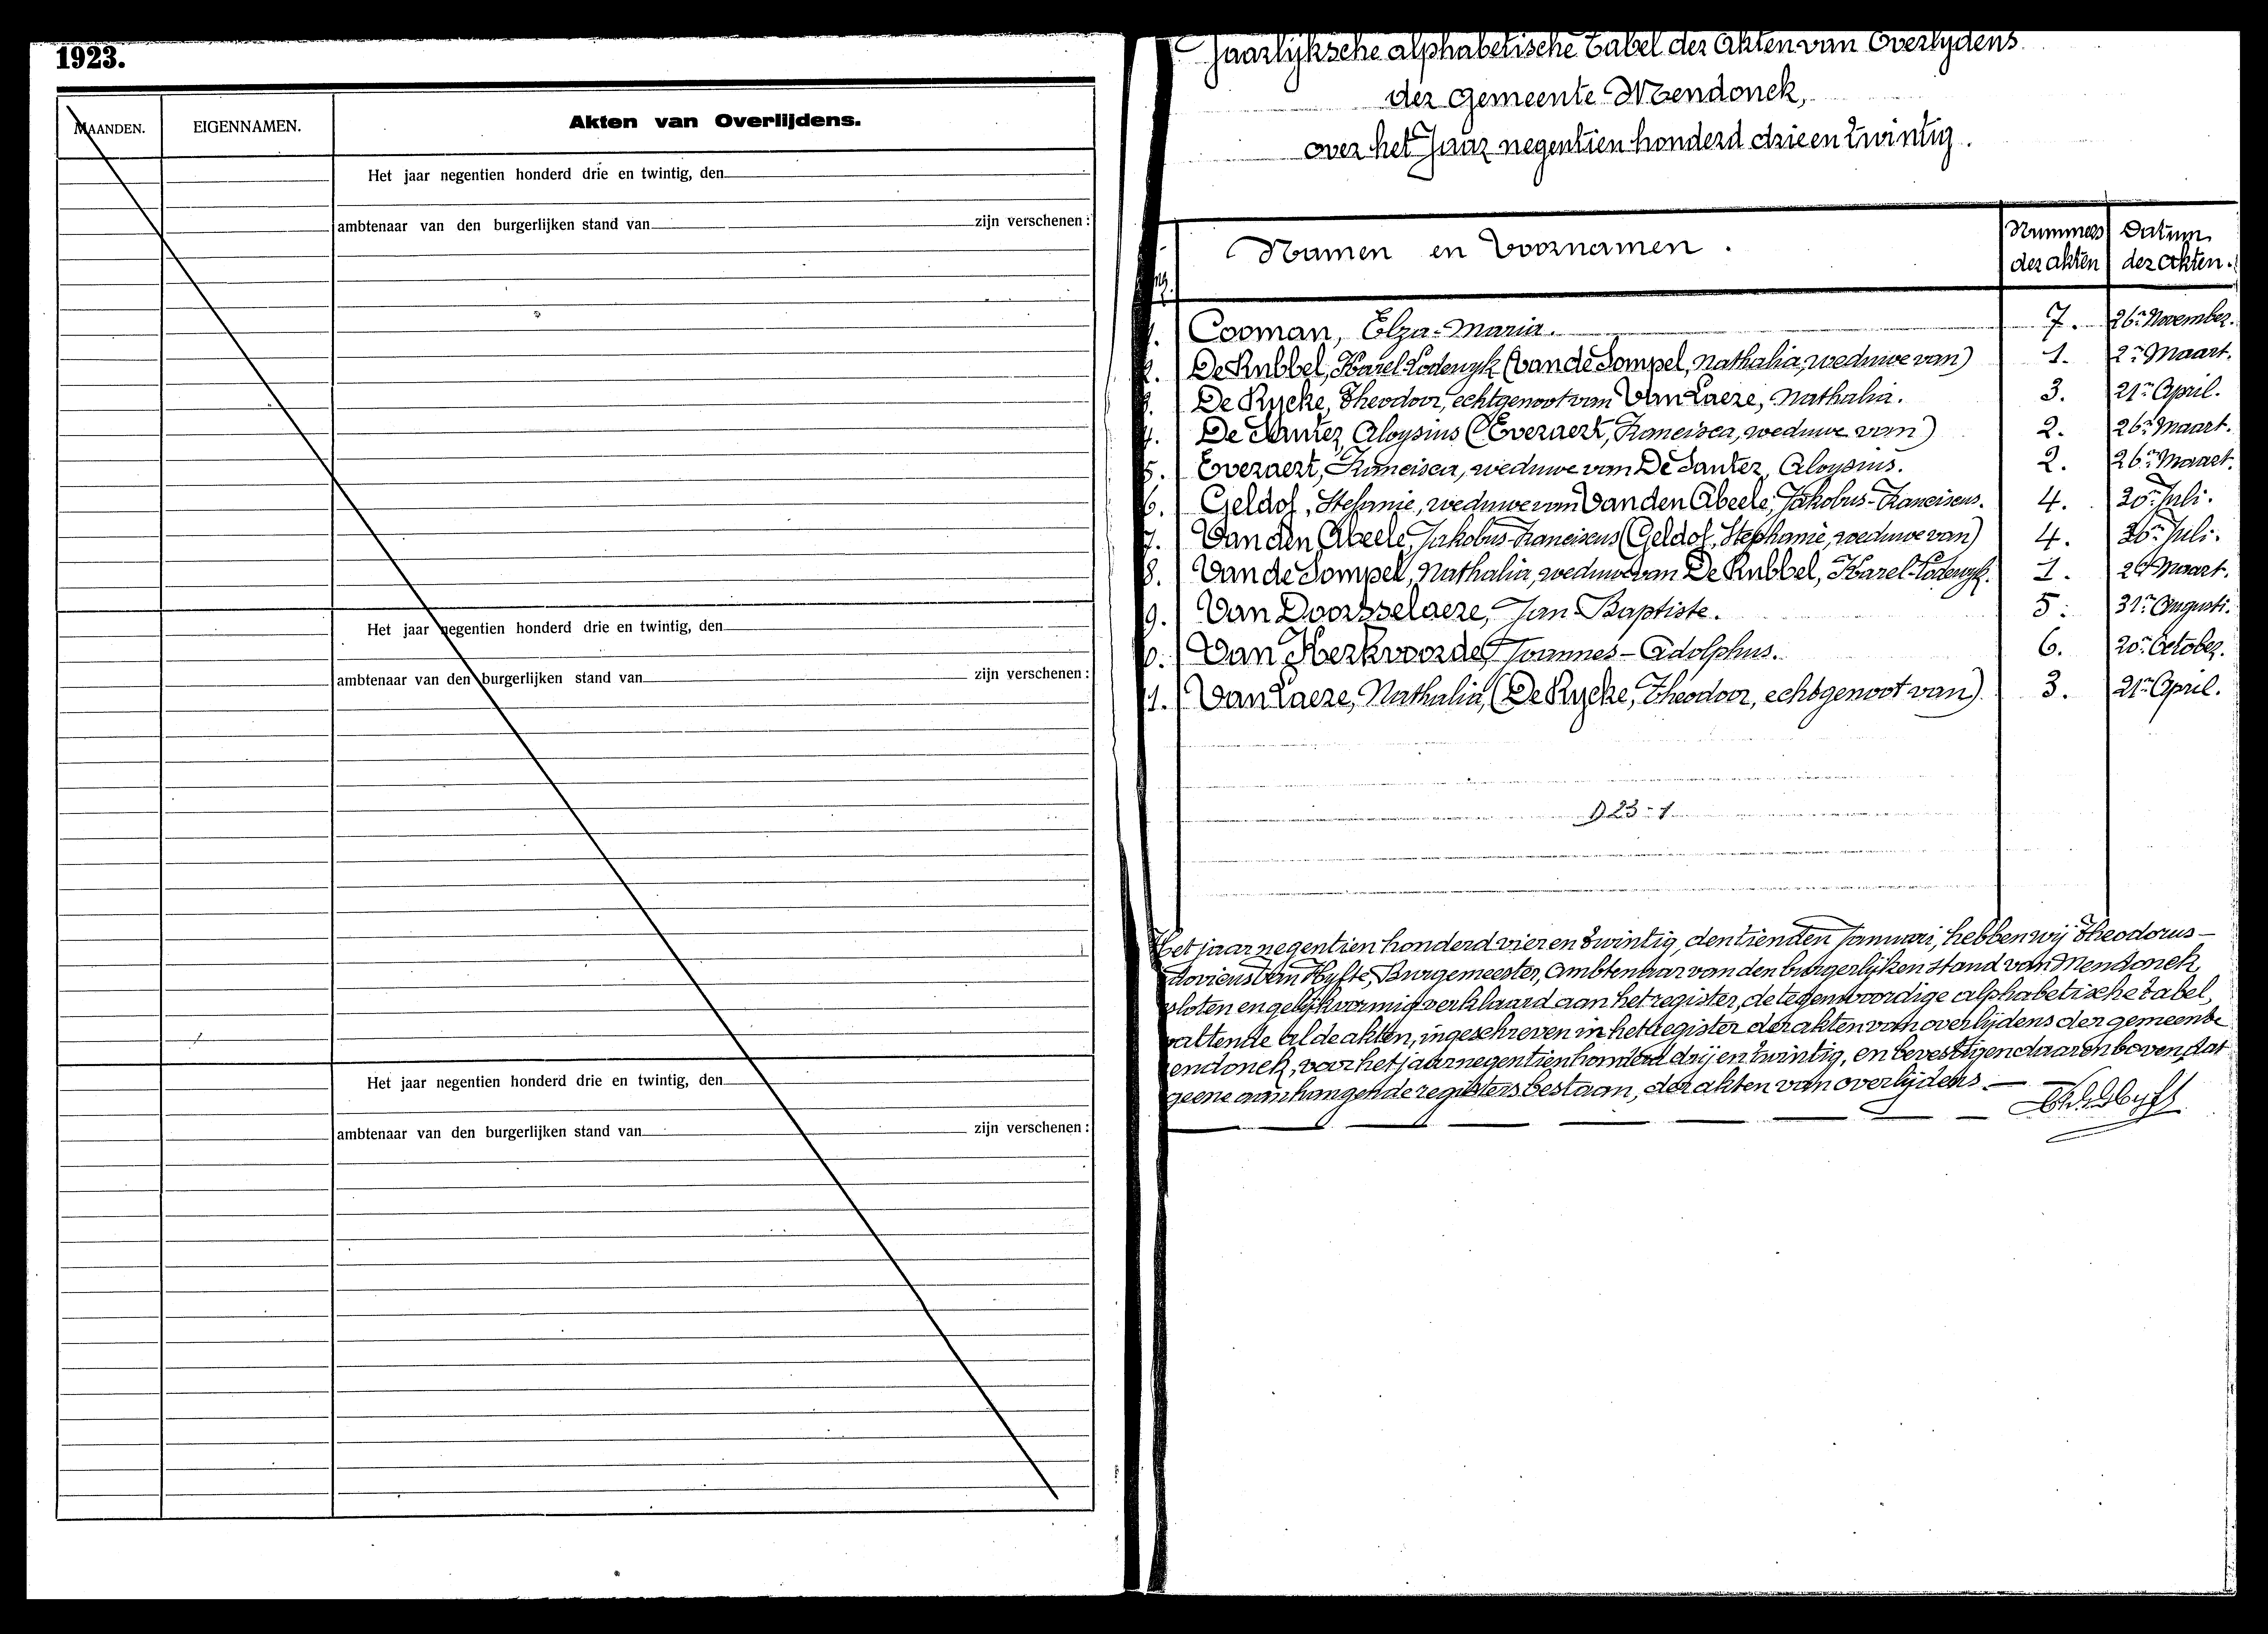 1923.
MAANDEN.
EIGENNAMEN.
Akten van Overlijdens.
Het jaar negentien honderd drie en twintig, den
ambtenaar van den burgerlijken stand van zijn verschenen :
Het jaar negentien honderd drie en twintig, den
ambtenaar van den burgerlijken stand van zijn verschenen :
Het jaar negentien honderd drie en twintig, den
ambtenaar van den burgerlijken stand van zijn verschenen :
Jaarlijksche alphabetische tabel der Akten van Overlijdens
der Gemeente Mendonck,
over het Jaar negentien honderd drie en twintig.
Namen en Voornamen. Nummers der akten Datum der akten.
1. Cooman, Elza-Maria. 7. 26n November.
2. De Kubbel, Karel-Lodewyk (Van de Sompel, Nathalia, weduwe van) 1. 2n Maart.
3. De Rycke, Theodoor, echtgenoot van Van Laere, Nathalia. 3. 21n April.
4. De Sauter, Aloysius (Everaert, Francisca, weduwe van) 2. 26n Maart.
5. Everaert, Francisca, weduwe van De Sauter, Aloysius. 2. 26n Maart.
6. Geldof, Stefanie, weduwe van Van den Abeele, Jakobus-Franciscus. 4. 20n Juli.
7. Van den Abeele, Jakobus-Franciscus (Geldof, Stephanie, weduwe van) 4. 20n Juli.
8. Van de Sompel, Nathalia, weduwe van De Kubbel, Karel-Lodewyk. 1. 2n Maart.
9. Van Doorsselaere, Jan Baptiste. 5. 31n Augusti.
0. Van Kerkvoorde, Joannes-Adolphus. 6. 20n October.
1. Van Laere, Nathalia, (De Rycke, Theodoor, echtgenoot van) 3. 21n April.
Het jaar negentien honderd vier en twintig, den tienden Januari, hebben wij Theodorus-
dovicus Van Hyfte, Burgemeester, Ambtenaar van den burgerlijken stand van Mendonck,
sloten en gelijkvormig verklaard aan het register, de tegenwoordige alphabetische tabel,
vattende al de akten, ingeschreven in het register der akten van overlijdens der gemeente
endonck, voor het jaar negentien honderd drij en twintig, en bevestigen daarenboven dat
geene aanhangende registers bestaan, der akten van overlijdens. —